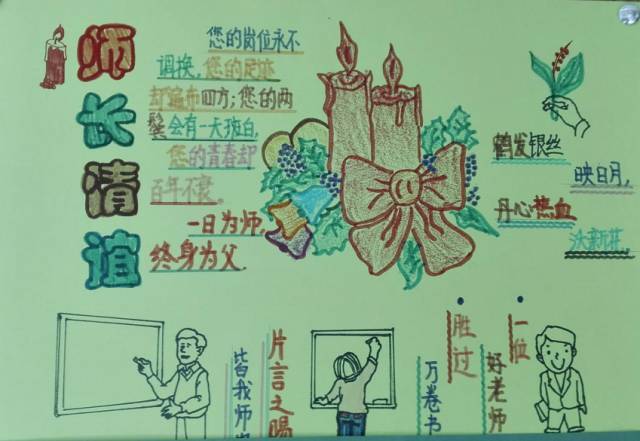 师长情谊
您的岗位永不
调换，您的足迹
却遍布四方；您的两
鬓会有一天斑白，
您的青春却
百年不衰。
一日为师，
终身为父。
鹤发银丝
映日月，
丹心热血
沃新花。
片言之赐
皆我师
一位
好老师
胜过
万卷书